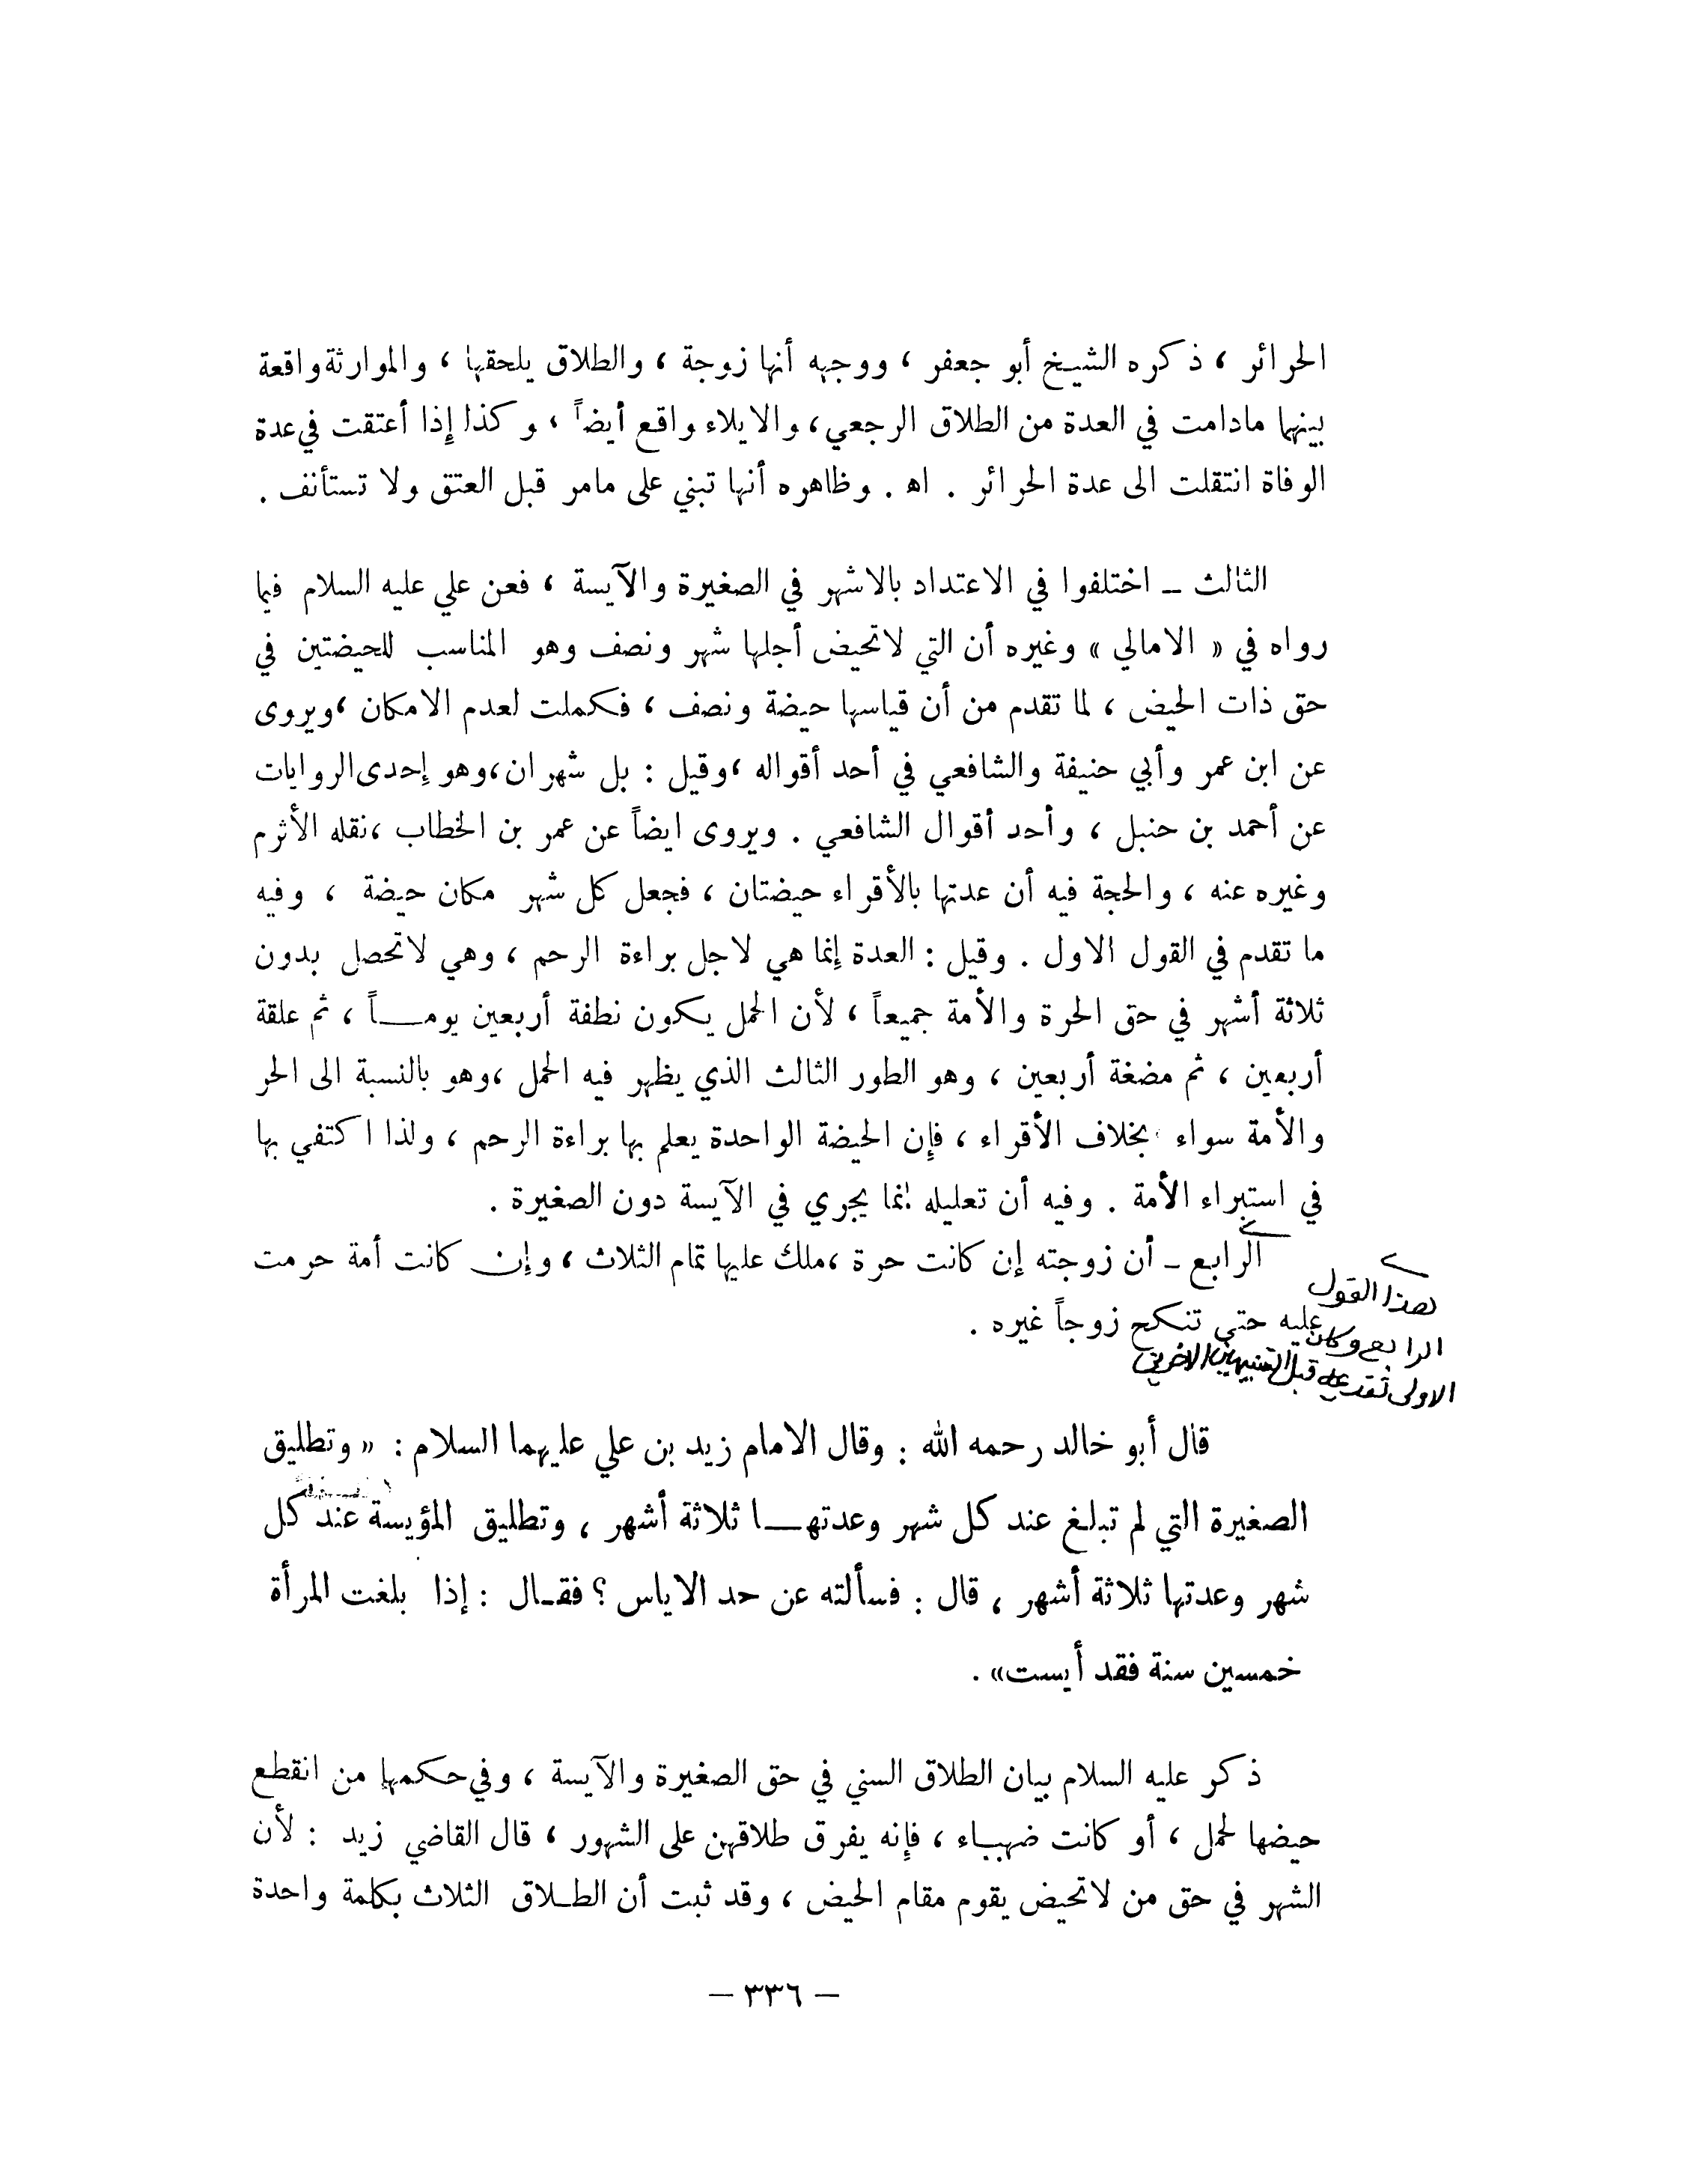 الحرائر ، ذكره الشيخ أبو جعفر ، ووجهه أنها زوجة ، والطلاق يلحقها ، والموارثة واقعة
بينهما مادامت في العدة من الطلاق الرجعي ، والايلاء واقع أيضاً ، وكذا إذا أعتقت في عدة
الوفاة انتقلت الى عدة الحرائر . اه . وظاهره أنها تبني على مامر قبل العتق ولا تستأنف .
الثالث ــ اختلفوا في الاعتداد بالاشهر في الصغيرة والآيسة ، فعن علي عليه السلام فيما
رواه في « الامالي » وغيره أن التي لاتحيض أجلها شهر ونصف وهو المناسب للحيضتين في
حق ذات الحيض ، لما تقدم من أن قياسها حيضة ونصف ، فكملت لعدم الامكان ، ويروى
عن ابن عمر وأبي حنيفة والشافعي في أحد أقواله ، وقيل : بل شهران ، وهو إحدى الروايات
عن أحمد بن حنبل ، وأحد أقوال الشافعي . ويروى ايضاً عن عمر بن الخطاب ، نقله الأثرم
وغيره عنه ، والحجة فيه أن عدتها بالأقراء حيضتان ، فجعل كل شهر مكان حيضة ، وفيه
ما تقدم في القول الاول . وقيل : العدة إنما هي لاجل براءة الرحم ، وهي لاتحصل بدون
ثلاثة أشهر في حق الحرة والأمة جميعاً ، لأن الحمل يكون نطفة أربعين يومـــاً ، ثم علقة
أربعين ، ثم مضغة أربعين ، وهو الطور الثالث الذي يظهر فيه الحمل ، وهو بالنسبة الى الحر
والأمة سواء بخلاف الأقراء ، فإن الحيضة الواحدة يعلم بها براءة الرحم ، ولذا اكتفي بها
في استبراء الأمة . وفيه أن تعليله إنما يجري في الآيسة دون الصغيرة .
الرابع ــ أن زوجته إن كانت حرة ، ملك عليها تمام الثلاث ، وإن كانت أمة حرمت
عليه حتى تنكح زوجاً غيره .
هذا القول
الرابع وكان
الاولى تقديمه قبل التنبيهين الاخرين
قال أبو خالد رحمه الله : وقال الامام زيد بن علي عليهما السلام : « وتطليق
الصغيرة التي لم تبلغ عند كل شهر وعدتهـــا ثلاثة أشهر ، وتطليق المؤيسة عند كل
شهر وعدتها ثلاثة أشهر ، قال : فسألته عن حد الاياس ؟ فقـال : إذا بلغت المرأة
خمسين سنة فقد أيست» .
ذكر عليه السلام بيان الطلاق السني في حق الصغيرة والآيسة ، وفي حكمها من انقطع
حيضها لحمل ، أو كانت ضهيـاء ، فإنه يفرق طلاقهن على الشهور ، قال القاضي زيد : لأن
الشهر في حق من لاتحيض يقوم مقام الحيض ، وقد ثبت أن الطـلاق الثلاث بكلمة واحدة
– ٣٣٦ –